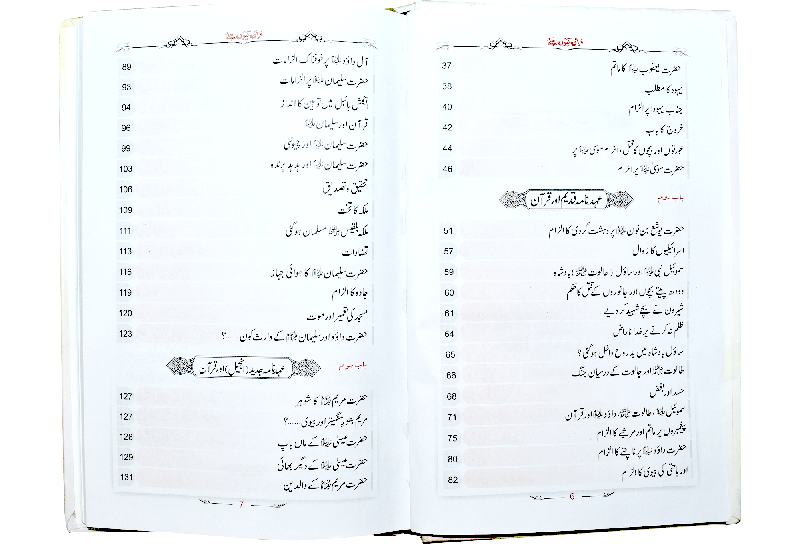 حضرت یعقوب علیہ السلام کا ماتم 37
یہود کا مطلب 38
جناب یہودا پر الزام 40
خروج کا باب 42
عورتوں اور بچوں کا قتل، الزام موسیٰ علیہ السلام پر 44
حضرت موسیٰ علیہ السلام پر الزام 46
باب دوم
عہد نامہ قدیم اور قرآن
حضرت یوشع بن نون علیہ السلام پر دہشت گردی کا الزام 51
اسرائیلیوں کا زوال 57
سموئیل نبی علیہ السلام اور ساؤل (طالوت علیہ السلام) بادشاہ 59
دودھ پیتے بچوں اور جانوروں کے قتل کا حکم 60
شیروں نے بچے شہید کر دیے 61
ظلم نہ کرنے پر خدا ناراض 64
ساؤل بادشاہ میں بد روح داخل ہو گئی؟ 65
طالوت علیہ السلام اور جالوت کے درمیان جنگ 66
حسد اور بغض 68
سموئیل علیہ السلام، طالوت علیہ السلام، داؤد علیہ السلام اور قرآن 71
پیغمبروں پر ماتم اور مرثیے کا الزام 75
حضرت داؤد علیہ السلام پر ناچنے کا الزام 80
اوریاحتی کی بیوی کا الزام 82
6
آل داؤد علیہ السلام پر خوفناک الزامات 89
حضرت سلیمان علیہ السلام پر الزامات 93
انگلش بائبل میں توہین کا انداز 94
قرآن اور سلیمان علیہ السلام 96
حضرت سلیمان علیہ السلام اور چیونٹی 99
حضرت سلیمان علیہ السلام اور ہدہد پرندہ 103
تحقیق و تصدیق 106
ملکہ کا تخت 109
ملکہ بلقیس علیہا السلام مسلمان ہو گئی 111
تضادات 113
حضرت سلیمان علیہ السلام کا ہوائی جہاز 116
جادو کا الزام 119
مسجد کی تعمیر اور موت 120
حضرت داؤد اور سلیمان علیہما السلام کے وارث کون ....؟ 123
باب سوم
عہد نامہ جدید (انجیل) اور قرآن
حضرت مریم علیہا السلام کا شوہر 127
مریم بطور منگیتر اور بیوی ....؟ 127
حضرت عیسیٰ علیہ السلام کے ماں باپ 128
حضرت عیسیٰ علیہ السلام کے دیگر بھائی 129
حضرت مریم علیہا السلام کے والدین 131
7